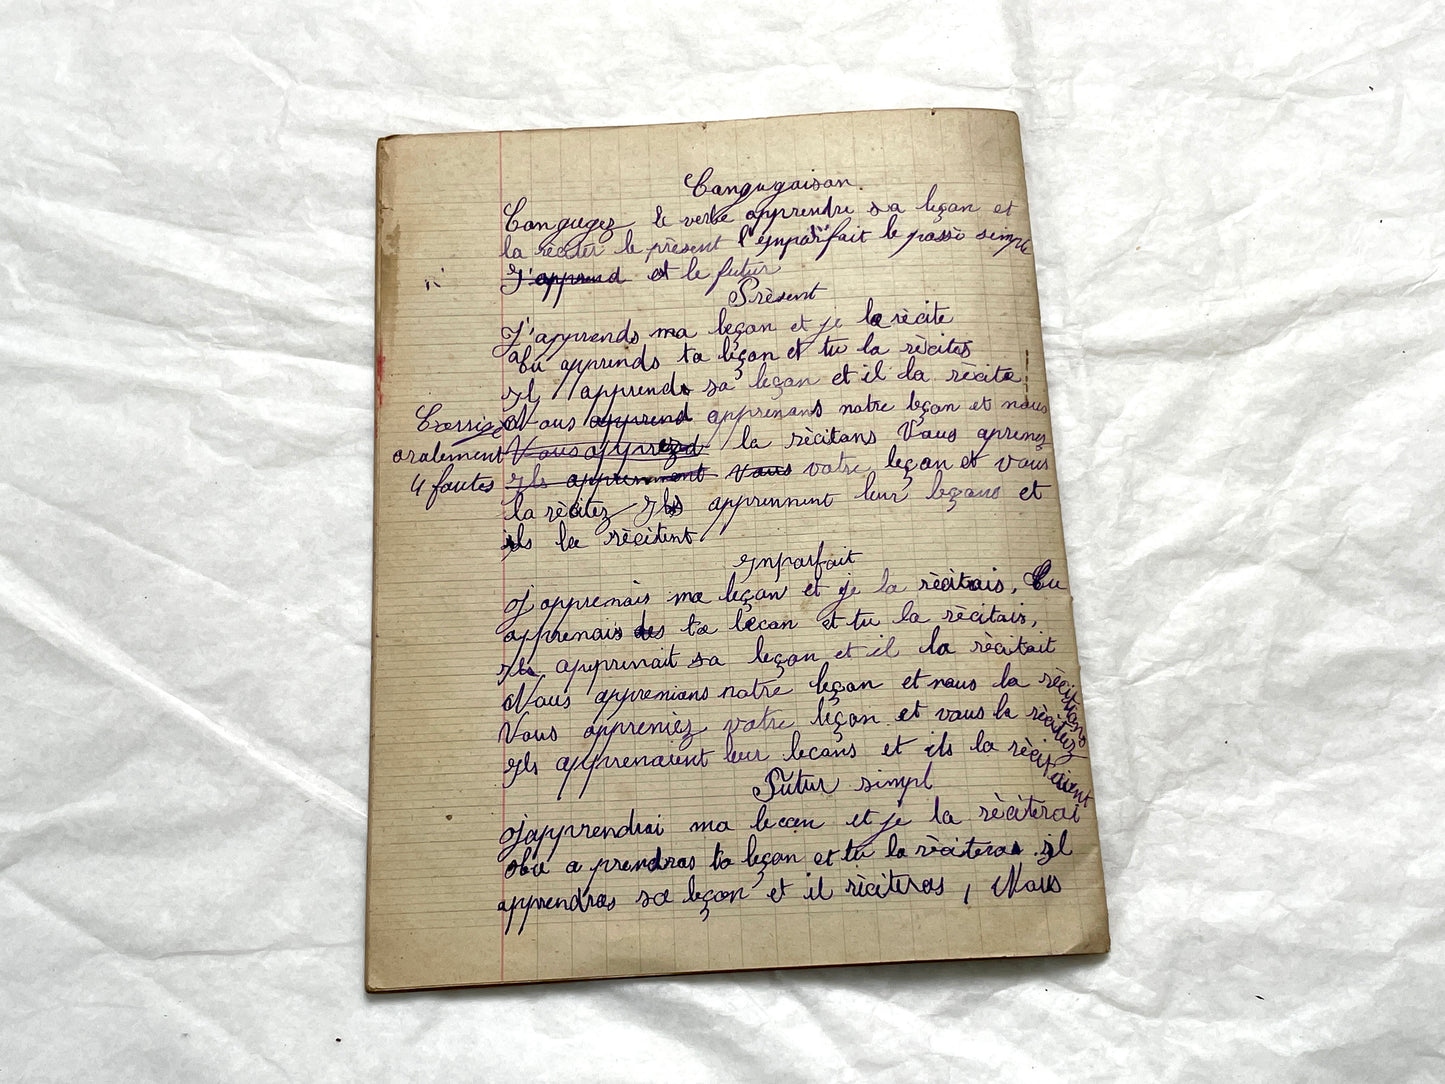 Congugaison.
Conguges le verbe apprendre sa leçon et
la réciter le présent l'inparfait le passé simple
J'apprend et le futur
Présent
J'apprends ma leçon et je la rècite
Tu apprends ta leçon et tu la rècites
Il apprends sa leçon et il la rècite
Nous apprend apprenons notre leçon et nous
Corrigé
oralement
4 fautes
Vous apprezd la rècitons Vous aprenez
Ils apprennent vous votre leçon et vous
la rècitez Ils apprennent leur leçons et
ils la rècitent
Inparfait
J'apprenais ma leçon et je la rècitais, Tu
apprenais des ta lecon et tu la rècitais,
Il apprenait sa leçon et il la rècitait
Nous apprenions notre leçon et nous la rècitions
Vous appreniez votre leçon et vous la rècitez
Ils apprenaient leur lecons et ils la rècitaient
Futur simpl
J'apprendrai ma lecon et je la rèciterai
Tu a prendras ta leçon et tu la rèciteras. Il
apprendras sa leçon et il rèciteras, Nous